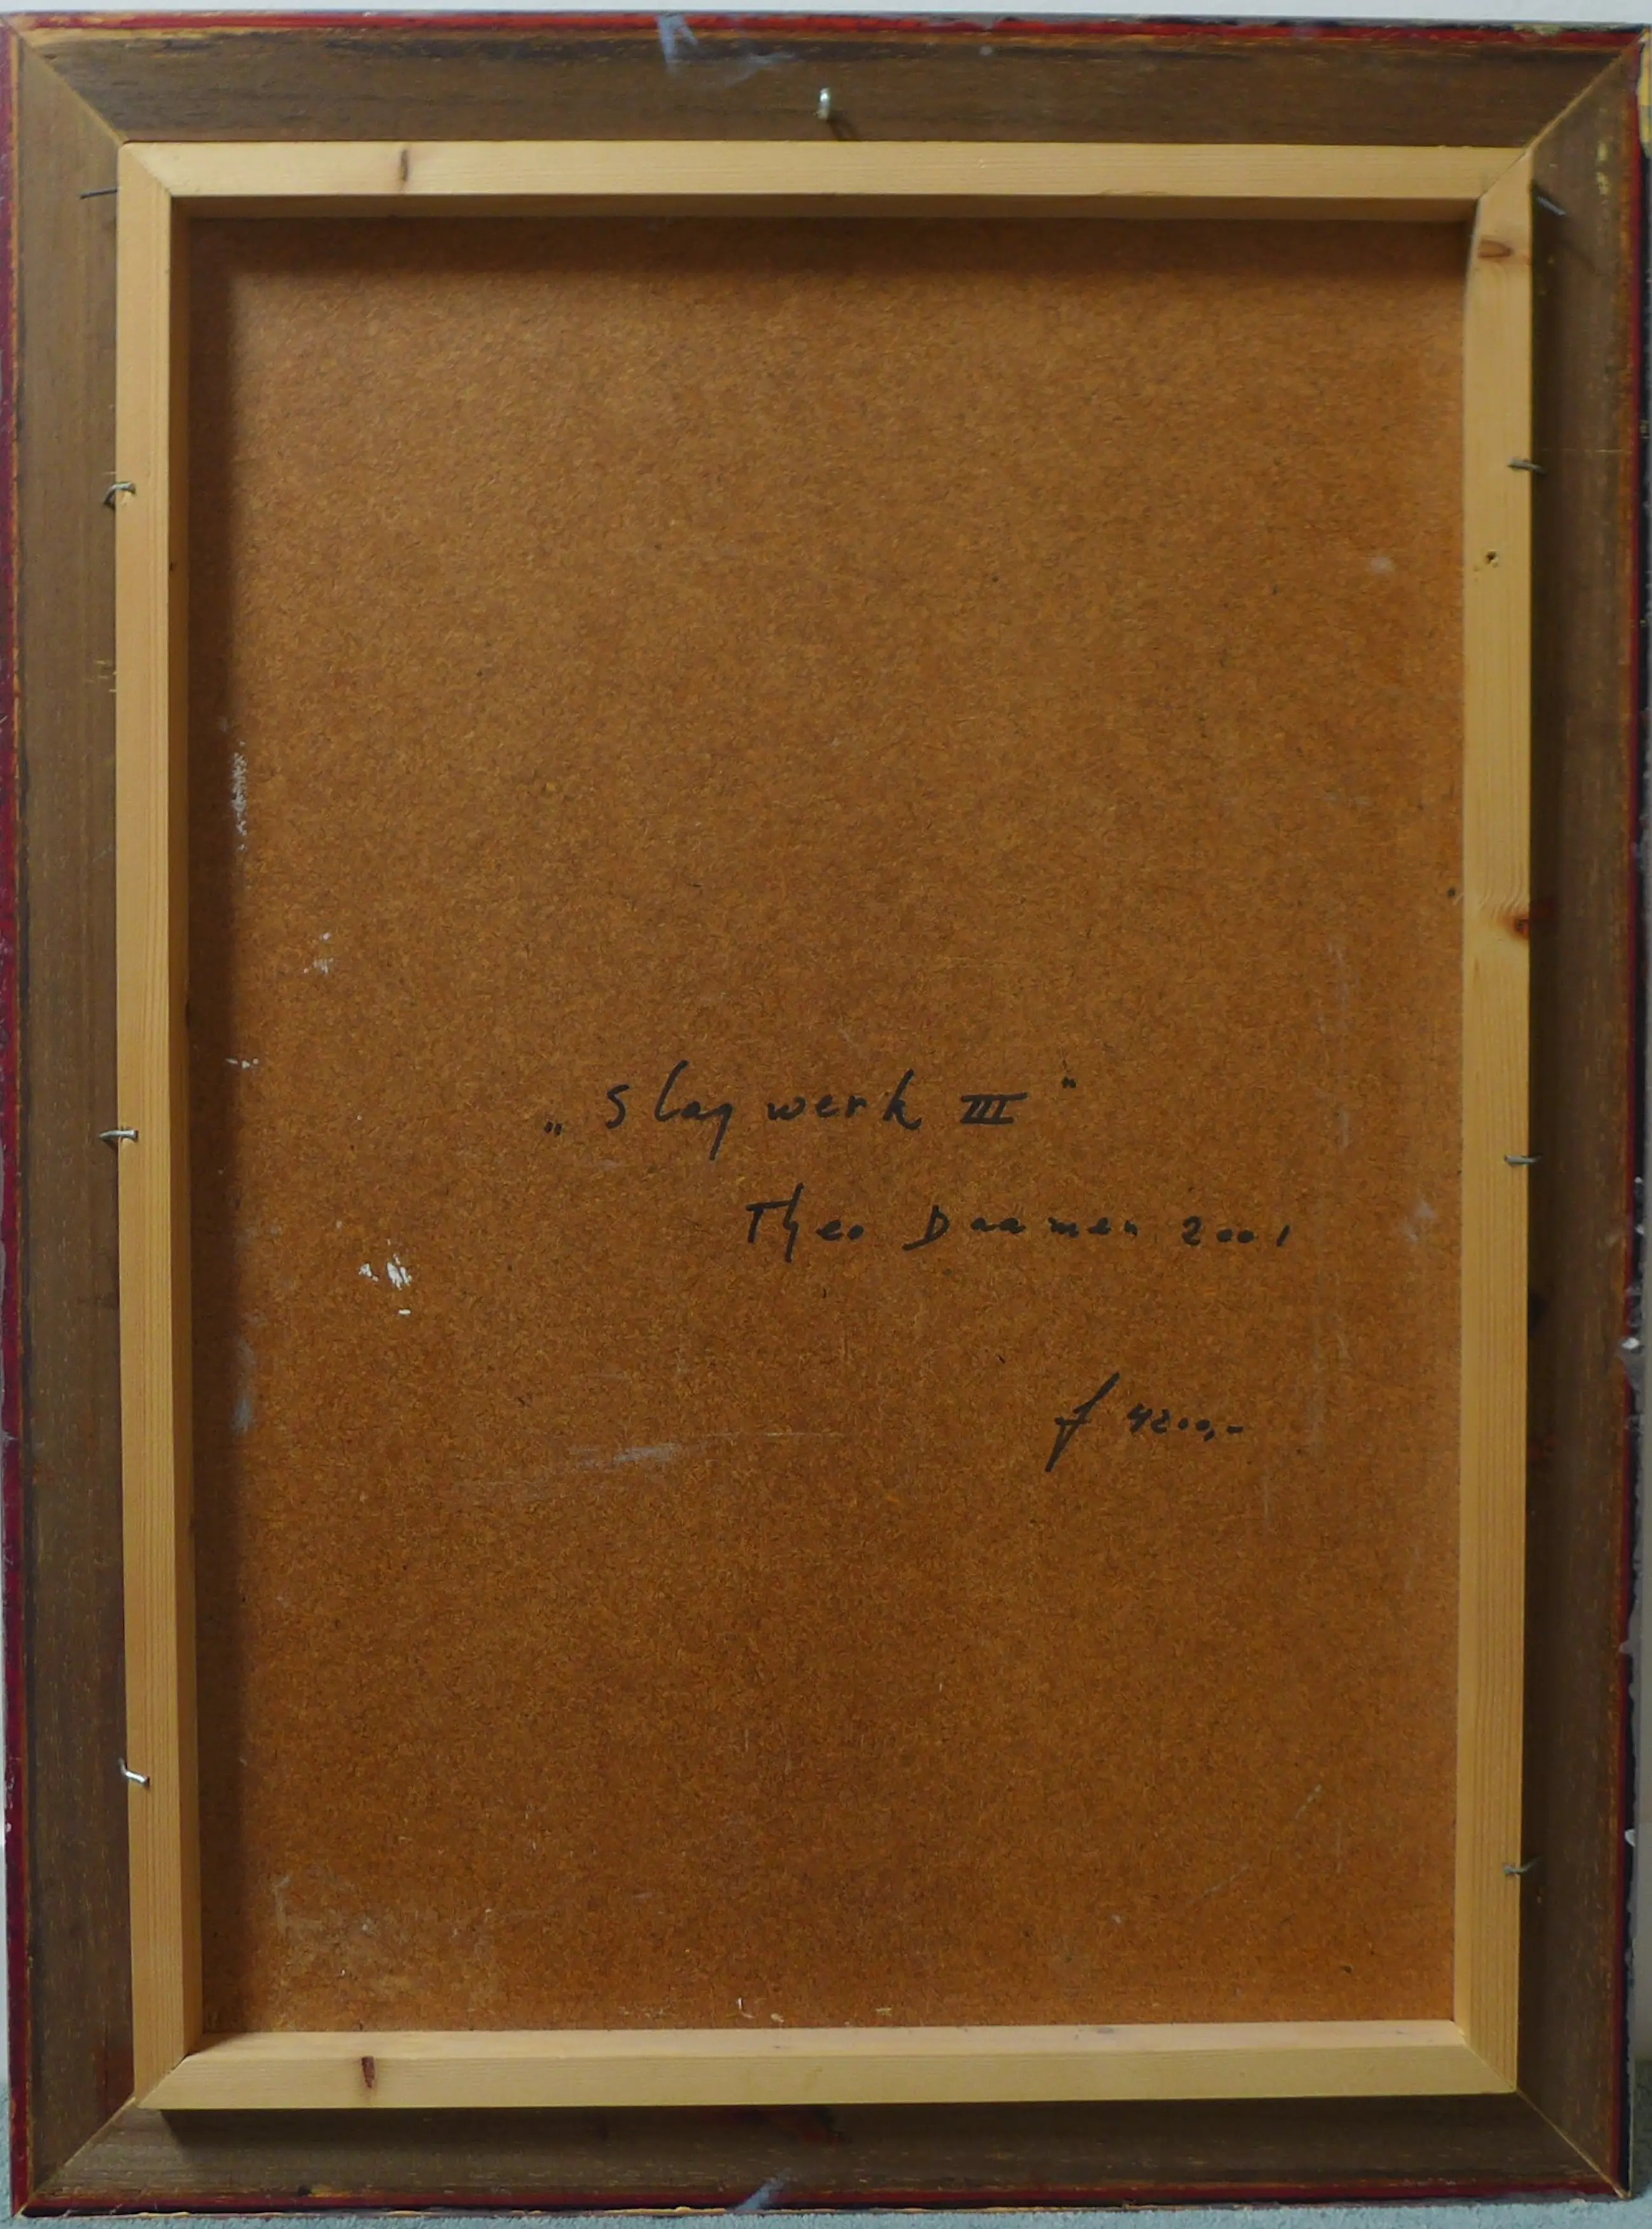 „ Slagwerk III "
Theo Daamen 2001
ƒ 4200,-